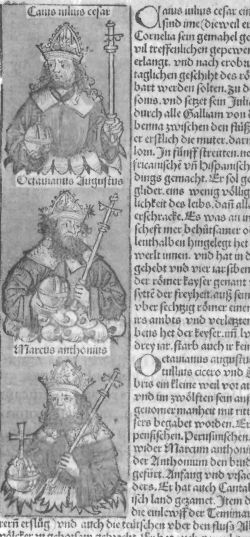 Caius iulius cesar
Octavianus Augustus
Marcus anthonius
Caius iulius cesar ein
sind ime (die weil er
Cornelia sein gemahel ge
vil treffenlichen gepew
erlangt. vnd nach erobru
taglichen geschiht des rö
bart werden solten. zu d
sonis. vnd setzet sein
durch alle Galliam von d
benna zwischen den flüß
er erstlich die muter. darn
lorn. In fünff streitten.
fricanische vn̄ hispanisch
dings gemacht. Er sol ge
glider. eins wenig völlig
lichkeit des leibs. dañ allei
erschracke. Es was an
scheft mer behůtsamer o
lenthalben hingelegt het
werck innen. vnd hat in d
gehebt vnd vier iar siben
der römer kayser genant
der freyheit. auß sein
vber sechtzig römer einer
rs ambts vnd verletzten
bens het der keyser.
drey iar. starb auch ir kein
Octauianus augustus
tullius cicero vnd
bris ein kleine weil vor
vnd im zwölften sein
genomer manheit mit rit
ers begabet worden. Er
pensischen. Perusinischen.
wider Marcum anthoni
der Anthonium den bind
gefürt. Anfang vnd vrsac
ders. Er hat auch Cantab
isch land gezamt. Item
die einlewff der
rern erslůg vnd auch die teütschen vber den fluss Alb